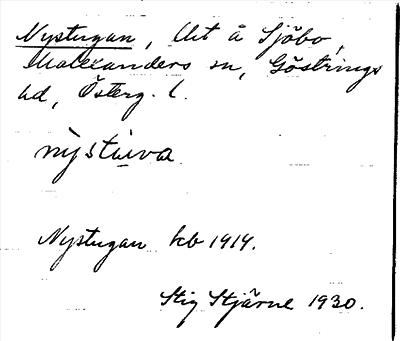 Nystugan, Ut å Sjöbo,
Malexanders sn, Göstrings
hd, Österg. l.
nystuva
Nystugan hb 1914.
Stig Stjärne 1930.